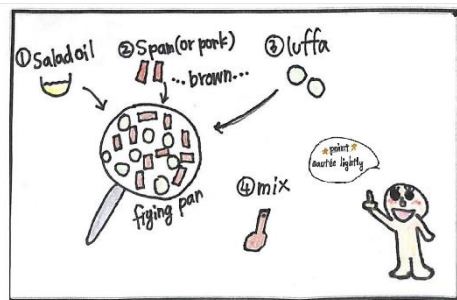 ① Salad oil
② Spam (or pork)
...brown...
③ luffa
frying pan
④ mix
★point★
sautée lightly